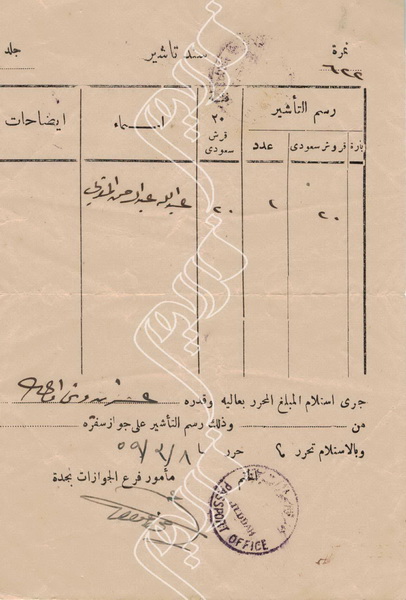 نمرة سند تأشير جلد
٦٢٢
رسم التأشير فئة ٢٠ قرش سعودي اسماء ايضاحات
بارة قروش سعودى عدد
٢٠ ١ ٢٠ عبدالله عبدالرحمن
جرى استلام المبلغ المحرر بعاليه وقدره
من وذلك رسم التأشير على جواز سفره
وبالاستلام تحرر حرر ٥٩/٣/٨
مأمور فرع الجوازات بجدة
PASSPORT OFFICE
JEDDAH